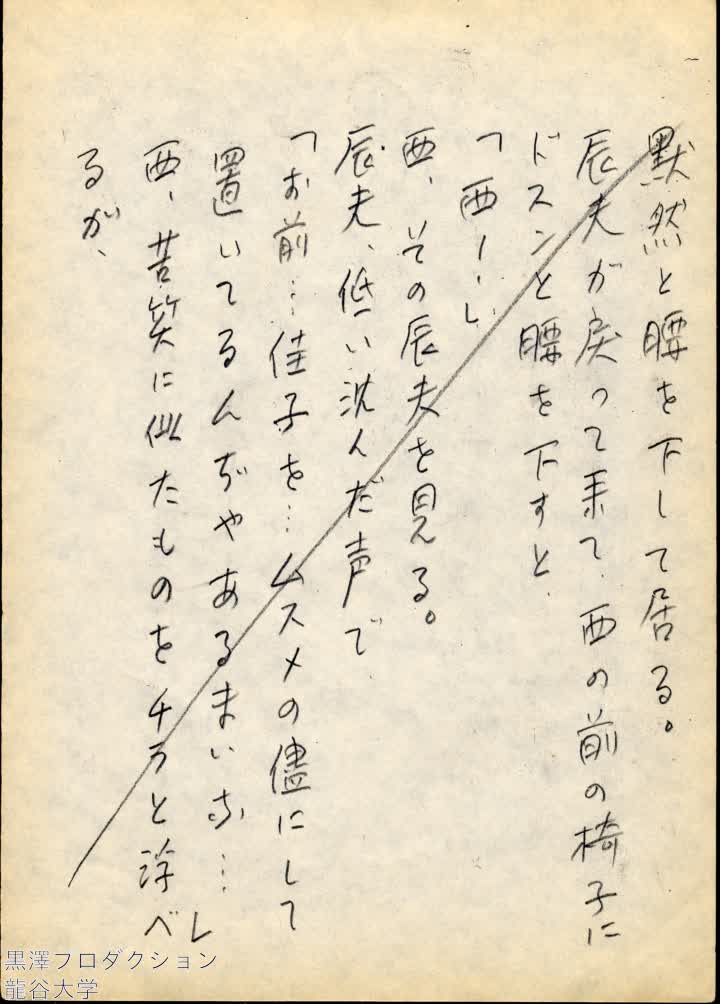 黙然と腰を下して居る。
辰夫が戻って来て、西の前の椅子に
ドスンと腰を下すと、
「西ー」
西、その辰夫を見る。
辰夫、低い沈んだ声で
「お前…佳子を…ムスメの儘にして
置いてるんぢやあるまいな…」
西、苦笑に似たものをチラと浮べ
るが、
黒澤プロダクション
龍谷大学